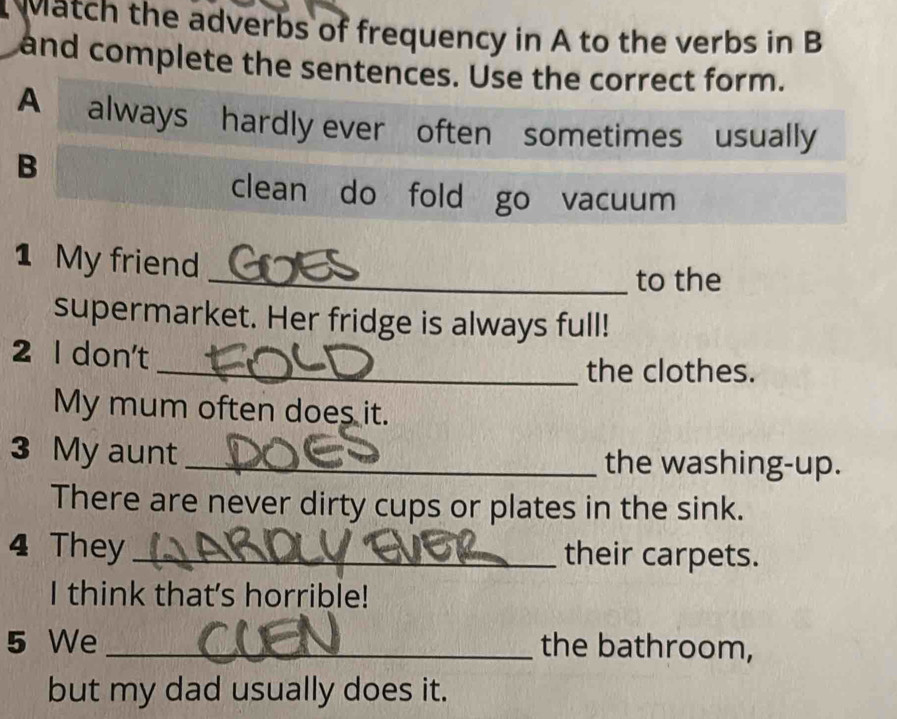 1 Match the adverbs of frequency in A to the verbs in B
and complete the sentences. Use the correct form.
A always hardly ever often sometimes usually
B clean do fold go vacuum
1 My friend GOES to the
supermarket. Her fridge is always full!
2 I don't FOLD the clothes.
My mum often does it.
3 My aunt DOES the washing-up.
There are never dirty cups or plates in the sink.
4 They HARDLY EVER their carpets.
I think that's horrible!
5 We CLEN the bathroom,
but my dad usually does it.